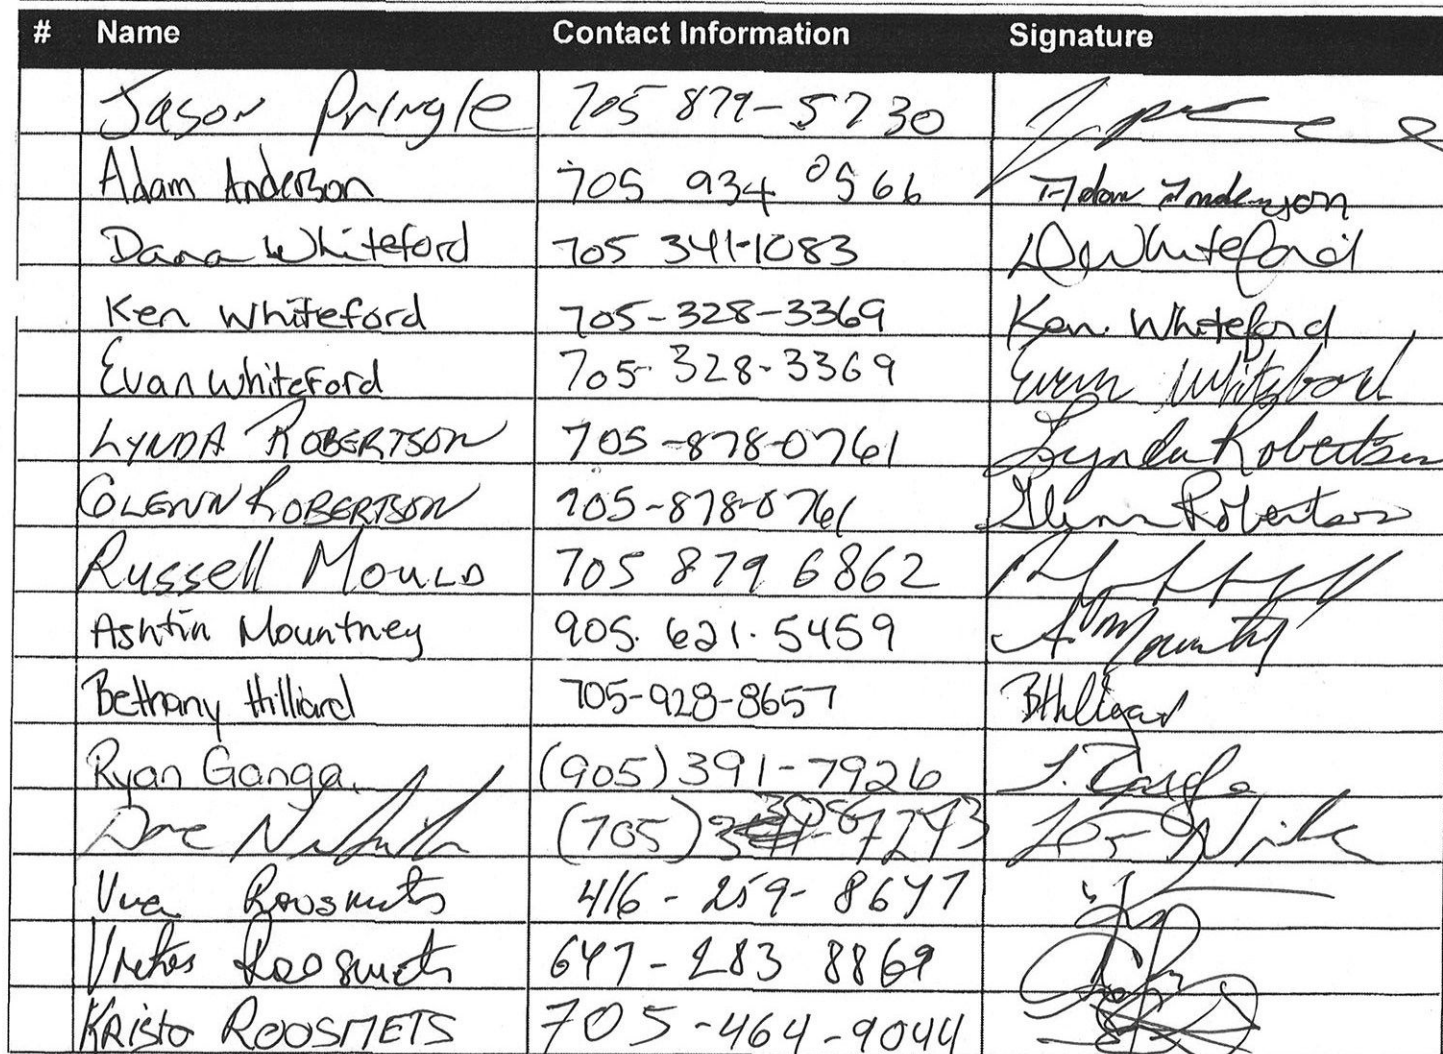 # Name Contact Information Signature
Jason Pringle 705 879-5730
Adam Anderson 705 934 0566 Adam Anderson
Dana Whiteford 705 341-1083 D Whiteford
Ken Whiteford 705-328-3369 Ken Whiteford
Evan Whiteford 705-328-3369 Evan Whiteford
LYNDA ROBERTSON 705-878-0761 Lynda Robertson
GLENN ROBERTSON 705-878-0761 Glenn Robertson
Russell Mould 705 879 6862
Ashtin Mountney 905. 621. 5459 A Mountney
Bethany Hilliard 705-928-8657 BHilliard
Ryan Ganga. (905) 391-7926
(705)
Roosmets 416-259-8647
Roosmets 647-283 8869
KRISTO ROOSMETS 705-464-9044